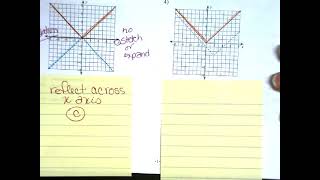 no
stretch
or
expand
4)
reflect across
x axis
C